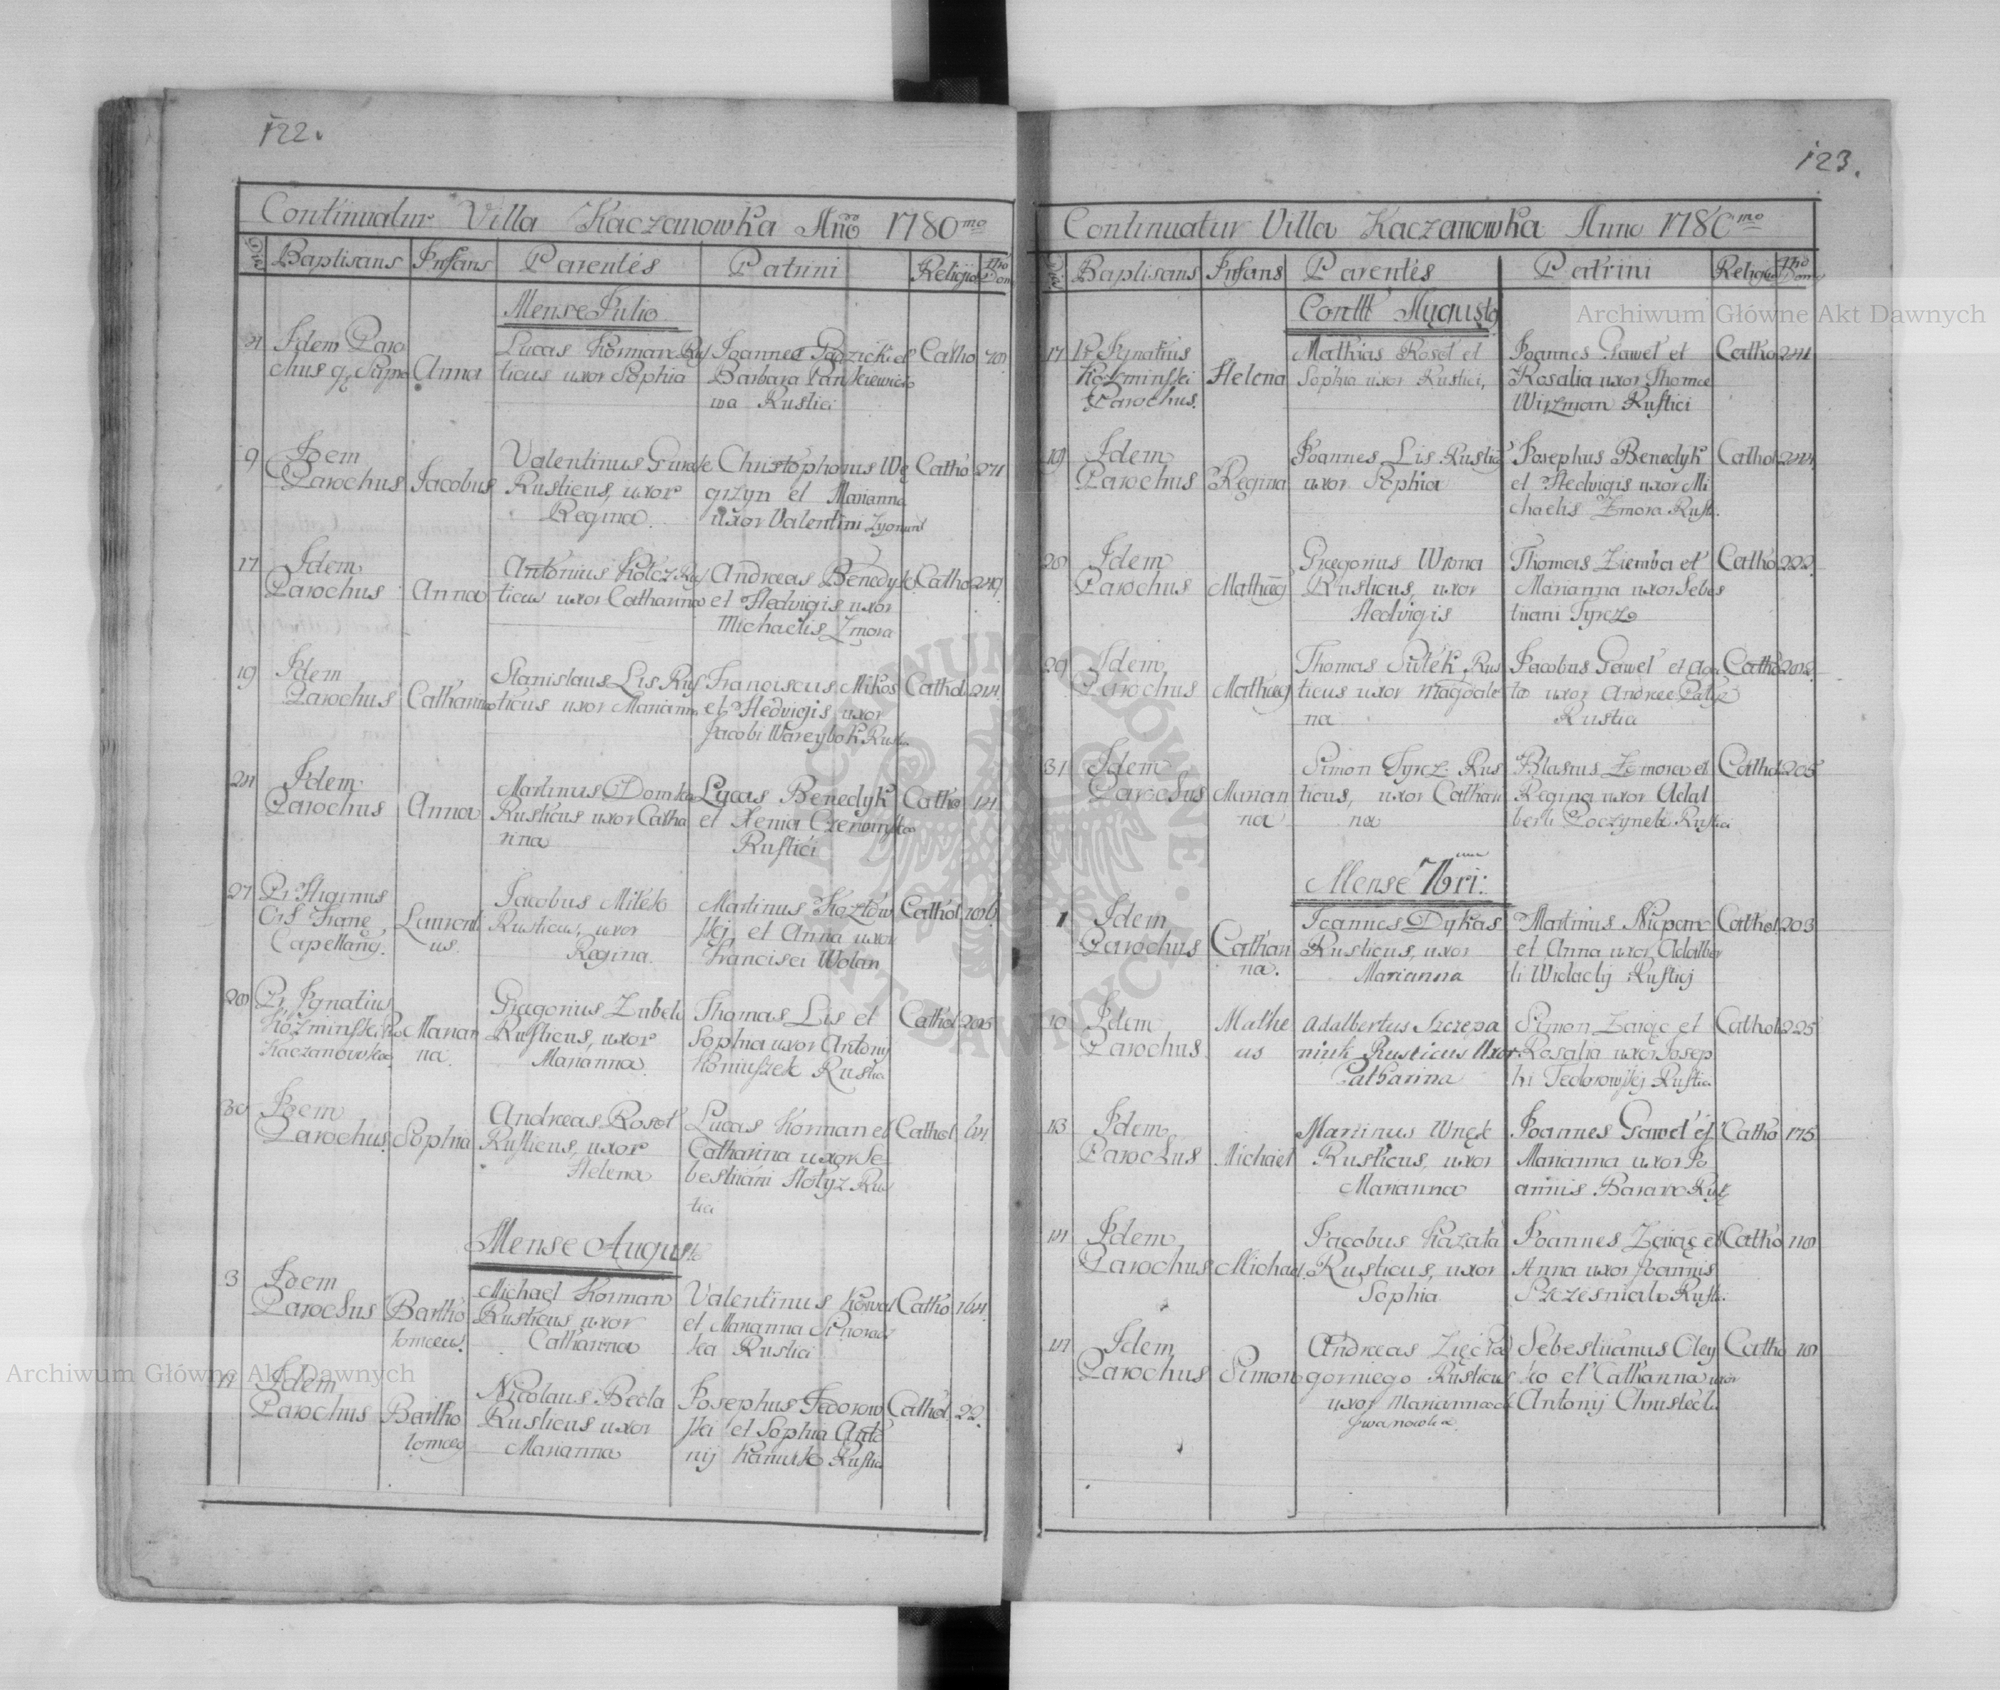 122.
Continuatur Villa Kaczanowka Año 1780mo
Dies Baptisans Infans Parentes Patrini Religio Nro Dom
Mense Julio
Idem Paro
chus qs Supra Anna
Lucas Korman Rus
ticus uxor Sophia
Joannes et
Barbara
wa Rustici
Catho
9 Idem
Parochus Jacobus
Valentinus
Rusticus, uxor
Regina.
Christophorus Wę
grzyn et Marianna
uxor Valentini Zygmunt
Catho 274
17 Idem
Parochus Anna
Antonius Kołcz Rus
ticus uxor Catharina
Andreas Benedyk
et Hedvigis uxor
Michaelis Zmora
Catho
19 Idem
Parochus Catharina
Stanislaus Lis Rus
ticus uxor Marianna
Franciscus Mikos
et Hedvigis uxor
Jacobi Wareybok Rustici
Cathol
24 Idem
Parochus Anna
Martinus
Rusticus uxor Catha
rina
Lucas Benedyk
et Xenia Czerwinska
Rustici
Catho
27 Pr
Ord Franc
Capellang.
Laurenti
us.
Jacobus Mitek
Rusticus, uxor
Regina.
Martinus Kozłow
ski et Anna uxor
Francisci Wolan
Cathol
Pr Ignatius
Kozminski Pa
Kaczanowka
Marian
na.
Gregorius Zubek
Rusticus, uxor
Marianna.
Thomas Lis et
Sophia uxor Antonij
Koniuszek Rustici
Cathol
30 Idem
Parochus. Sophia
Andreas Rosoł
Rusticus, uxor
Helena
Lucas Korman et
Catharina uxor Se
bestiani Hołyz Rus
tici
Cathol
Mense Augusti
3 Idem
Parochus Bartho
lomeus.
Michael Korman
Rusticus uxor
Catharina
Valentinus Kowal
et Marianna
ka Rustici
Catho
11 Idem
Parochus Bartho
lomeus
Nicolaus Becla
Rusticus uxor
Marianna
Josephus Fedorow
ski et Sophia Anto
nij Rustici
Cathol 22.
123.
Continuatur Villa Kaczanowka Anno 1780mo
Dies Baptisans Infans Parentes Patrini Religio Nro Dom
Contt Augusty
17 Pr Ignatius
Kozminski
Parochus.
Helena
Mathias Rosoł et
Sophia uxor Rustici,
Joannes Gaweł et
Rosalia uxor Thomae
Wirzman Rustici
Catho
19 Idem
Parochus Regina
Joannes Lis Rusticus
uxor Sophia
Josephus Benedyk
et Hedvigis uxor Mi
chaelis Zmora Rusti.
Cathol
20 Idem
Parochus
Gregorius Wrona
Rusticus, uxor
Hedvigis
Thomas Ziemba et
Marianna uxor Sebes
tiani Tyrcz
Catho 222.
Idem
Parochus
Thomas Sułek Rus
ticus uxor Magdale
na
Jacobus Gaweł et Aga
ta uxor Andreae
Rustici
Catho
31 Idem
Parochus Marian
na
Simon Tyrcz Rus
ticus, uxor Cathari
na
Blasius Zmora et
Regina uxor Adal
berti Poczynek Rustici
Cathol 205
Mense 7bri:
1 Idem
Parochus Cathari
na.
Joannes Dykas
Rusticus, uxor
Marianna
Martinus
et Anna uxor Adalber
ti Widacky Rusticj
Cathol 203
10 Idem
Parochus.
Mathe
us
Adalbertus Szczepa
niuk Rusticus Uxor
Catharina
Simon Zaiąc et
Rosalia uxor Josep
hi Fedorowski Rustici
Cathol 225
13 Idem
Parochus Michael
Martinus Wnęk
Rusticus, uxor
Marianna
Joannes Gaweł et
Marianna uxor Jo
annis Baran Rust
Catho 175
14 Idem
Parochus Michael.
Jacobus Kazała
Rusticus, uxor
Sophia
Joannes Zaiąc et
Anna uxor Joannis
Szczesniak Rusti.
Catho
Idem
Parochus Simon
Andreas Zięcia
gorniego Rusticus
uxor Marianna
Jwanowka
Sebestianus Oley
ko et Catharina uxor
Antonij Chrusteck
Catho
Archiwum Główne Akt Dawnych
Archiwum Główne Akt Dawnych
ARCHIWUM GŁÓWNE AKT DAWNYCH